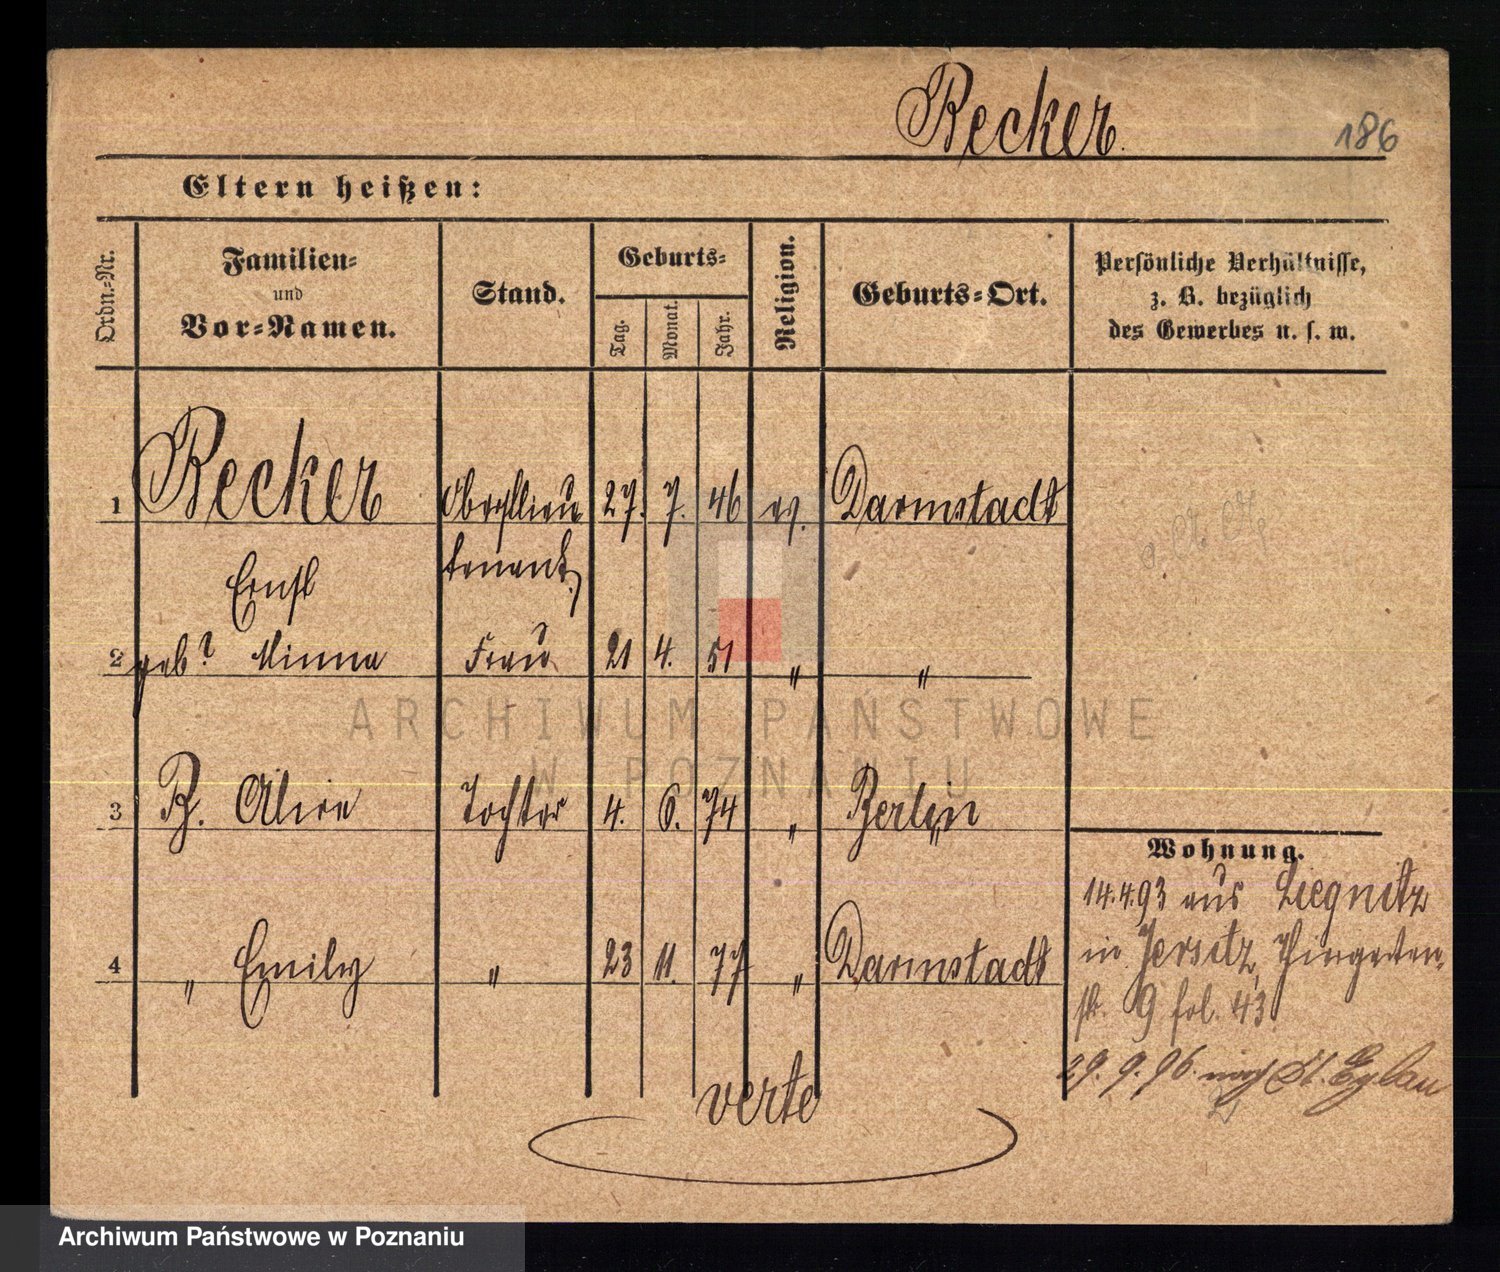 Becker.
186
Eltern heißen:
Ordn.-Nr.
Familien-
und
Vor-Namen.
Stand.
Geburts-
Tag.
Monat.
Jahr.
Religion.
Geburts-Ort.
Persönliche Verhältnisse,
z. B. bezüglich
des Gewerbes u. s. w.
1 Becker Oberstlieu 27. 7. 46 ev. Darmstadt
Ernst tenant
2 geb? Minna Frau 21 4. 51 " "
ARCHIWUM PAŃSTWOWE
W POZNANIU
3 B. Alice Tochter 4. 6. 74 " Berlin
4 " Emily " 23 11. 77 " Darmstadt
Wohnung.
14.4.93 aus Liegnitz
in Jersitz,
str. 9 fol. 43
29. 9. 96. nach Dt. Eylau
verte
Archiwum Państwowe w Poznaniu